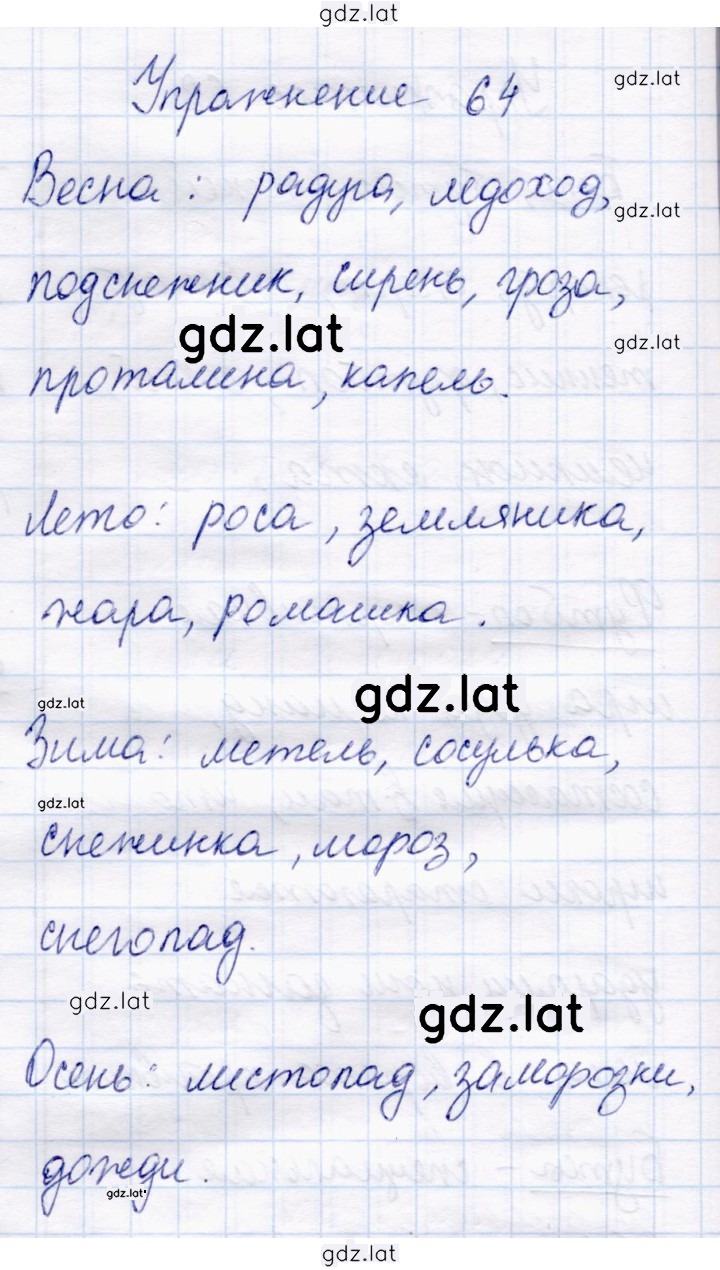 gdz.lat
Упражнение 64
gdz.lat
Весна: радуга, ледоход,
gdz.lat
подснежник, сирень, гроза,
gdz.lat
gdz.lat
проталина, капель.
Лето: роса, земляника,
жара, ромашка.
gdz.lat
gdz.lat
Зима: метель, сосулька,
gdz.lat
снежинка, мороз,
снегопад.
gdz.lat
gdz.lat
Осень: листопад, заморозки,
дожди.
gdz.lat
gdz.lat